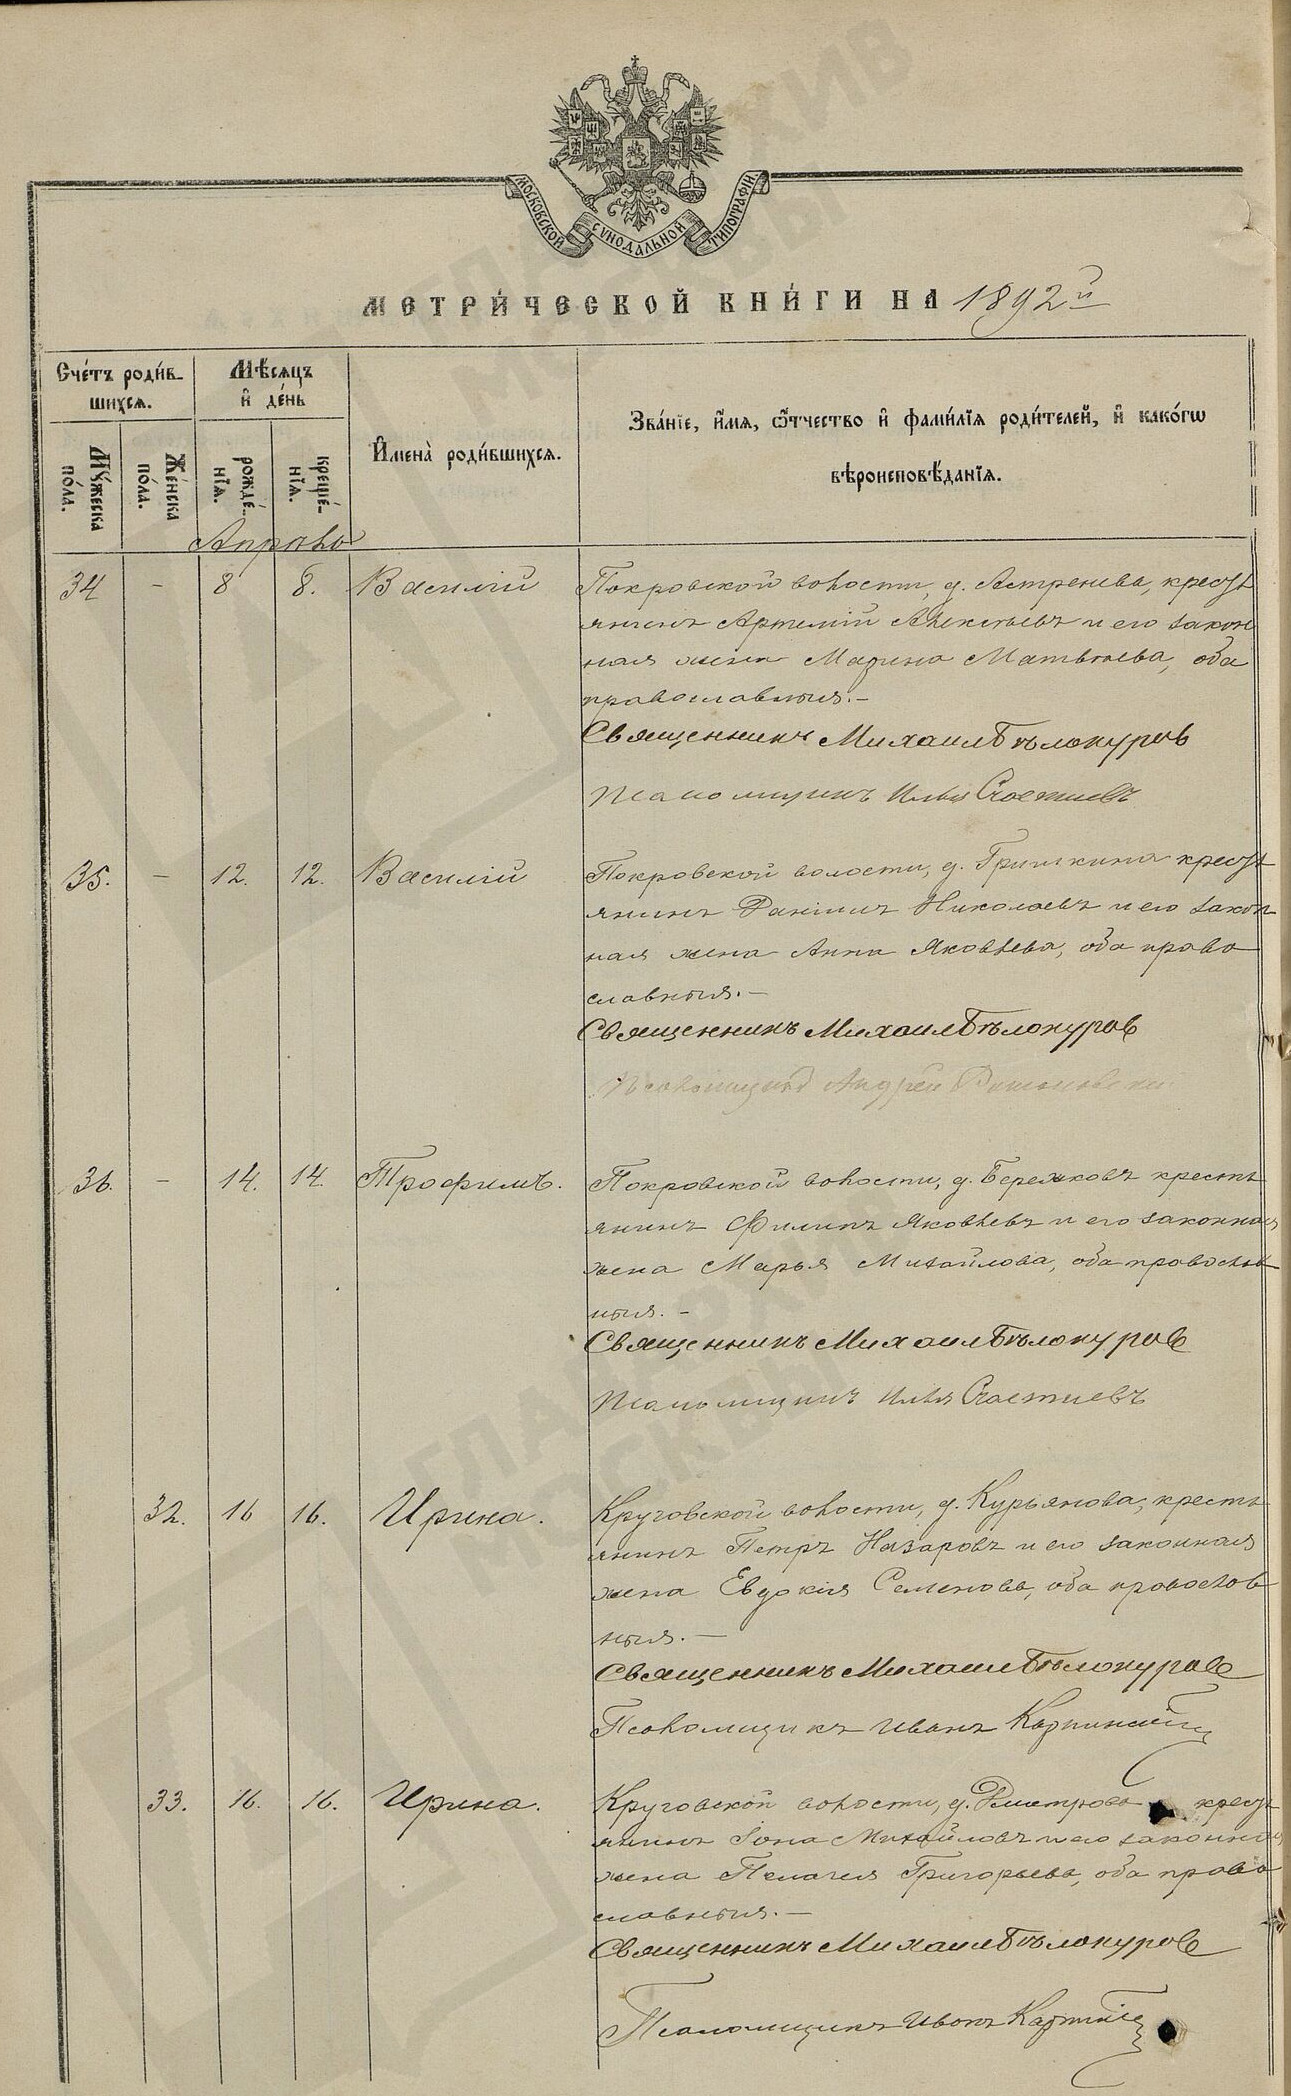 МОСКОВСКОЙ СУНОДАЛЬНОЙ ТИПОГРАФІИ
МЕТРИ́ЧЕСКОЙ КНИ́ГИ НА 1892й
Сче́тъ роди́в-
шихсѧ.
Мѣ́сѧцъ
и҆ де́нь
И҆мена̀ роди́вшихсѧ.
Зва́нїе, и҆́мѧ, ѻ҆́тчество и҆ фами́лїѧ роди́телей, и҆ како́гѡ
вѣроисповѣ́данїѧ.
Мꙋ́жеска
по́ла.
Же́нска
по́ла.
рожде́-
нїѧ.
креще́-
нїѧ.
Апрѣль
34 - 8 8. Василій Покровской волости, д. Астренева, кресть
янинъ Артемій Алексѣевъ и его закон
ная жена Марина Матвѣева, оба
православныя.-
Священникъ Михаилъ Бѣлокуровъ
Псаломщикъ Илья Счастневъ
35. - 12. 12. Василій Покровской волости, д. Гришкина кресть
янинъ Данiилъ Николаевъ и его закон
ная жена Анна Яковлева, оба право
славныя.-
Священникъ Михаилъ Бѣлокуровъ
Псаломщикъ Андрей
36. - 14. 14. Трофимъ. Покровской волости, д. Бережковъ кресть
янинъ Филипъ Яковлевъ и его законная
жена Марья Михайлова, оба православ
ныя.-
Священникъ Михаилъ Бѣлокуровъ
Псаломщикъ Илья Счастневъ
32. 16 16. Ирина. Круговской волости, д. Курьянова, кресть
янинъ Петръ Назаровъ и его законная
жена Евдокія Семенова, оба православ
ныя.-
Священникъ Михаилъ Бѣлокуровъ
Псаломщикъ Иванъ
33. 16. 16. Ирина. Круговской волости, д. Дмитрово кресть
янинъ Іона Михайловъ и его законная
жена Пелагея Григорьева, оба право
славныя.-
Священникъ Михаилъ Бѣлокуровъ
Псаломщикъ Иванъ
ГЛАВАРХИВ
МОСКВЫ
ГЛАВАРХИВ
МОСКВЫ